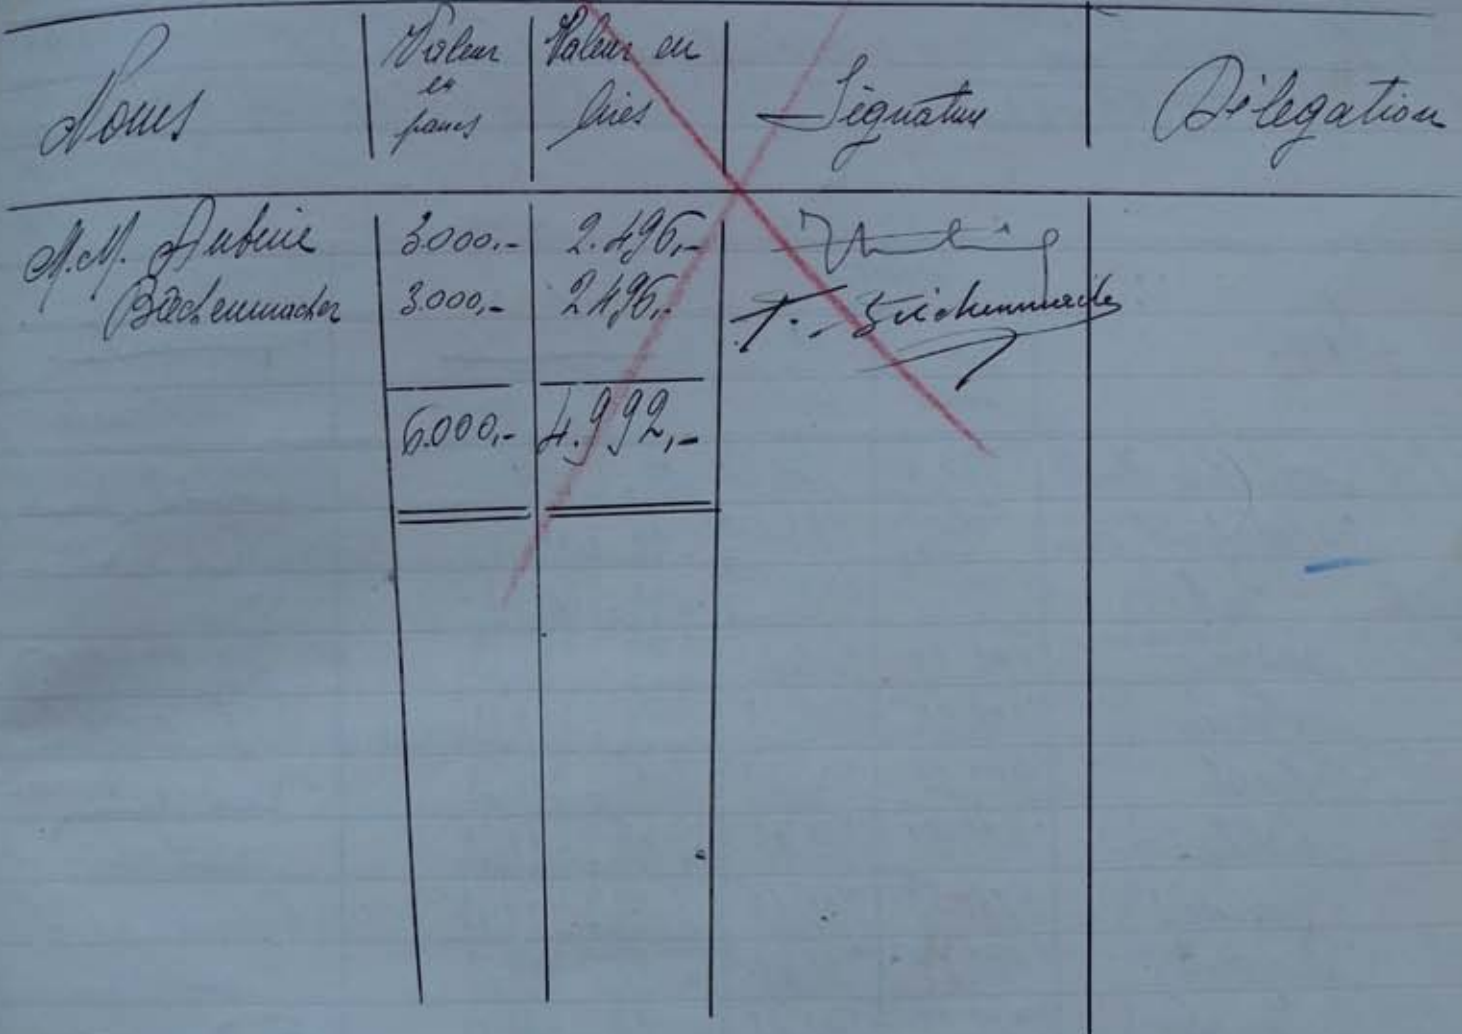 Noms Valeur en francs Valeur en lires Signature Délegation
M.M. Aubine 3.000,- 2.496,-
Bäckenmacher 3.000,- 2496,-
6.000,- 4.992,-